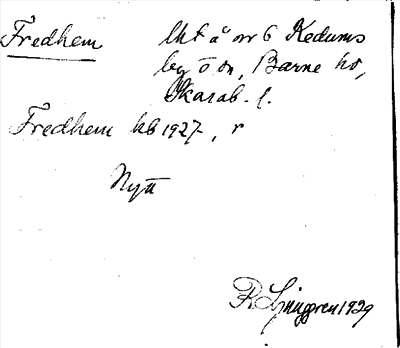 Fredhem lht å nr 6 Kedums
by o sn, Barne hd,
Skarab. l.
Fredhem kb 1927-, r
Nytt
R Ljunggren 1929